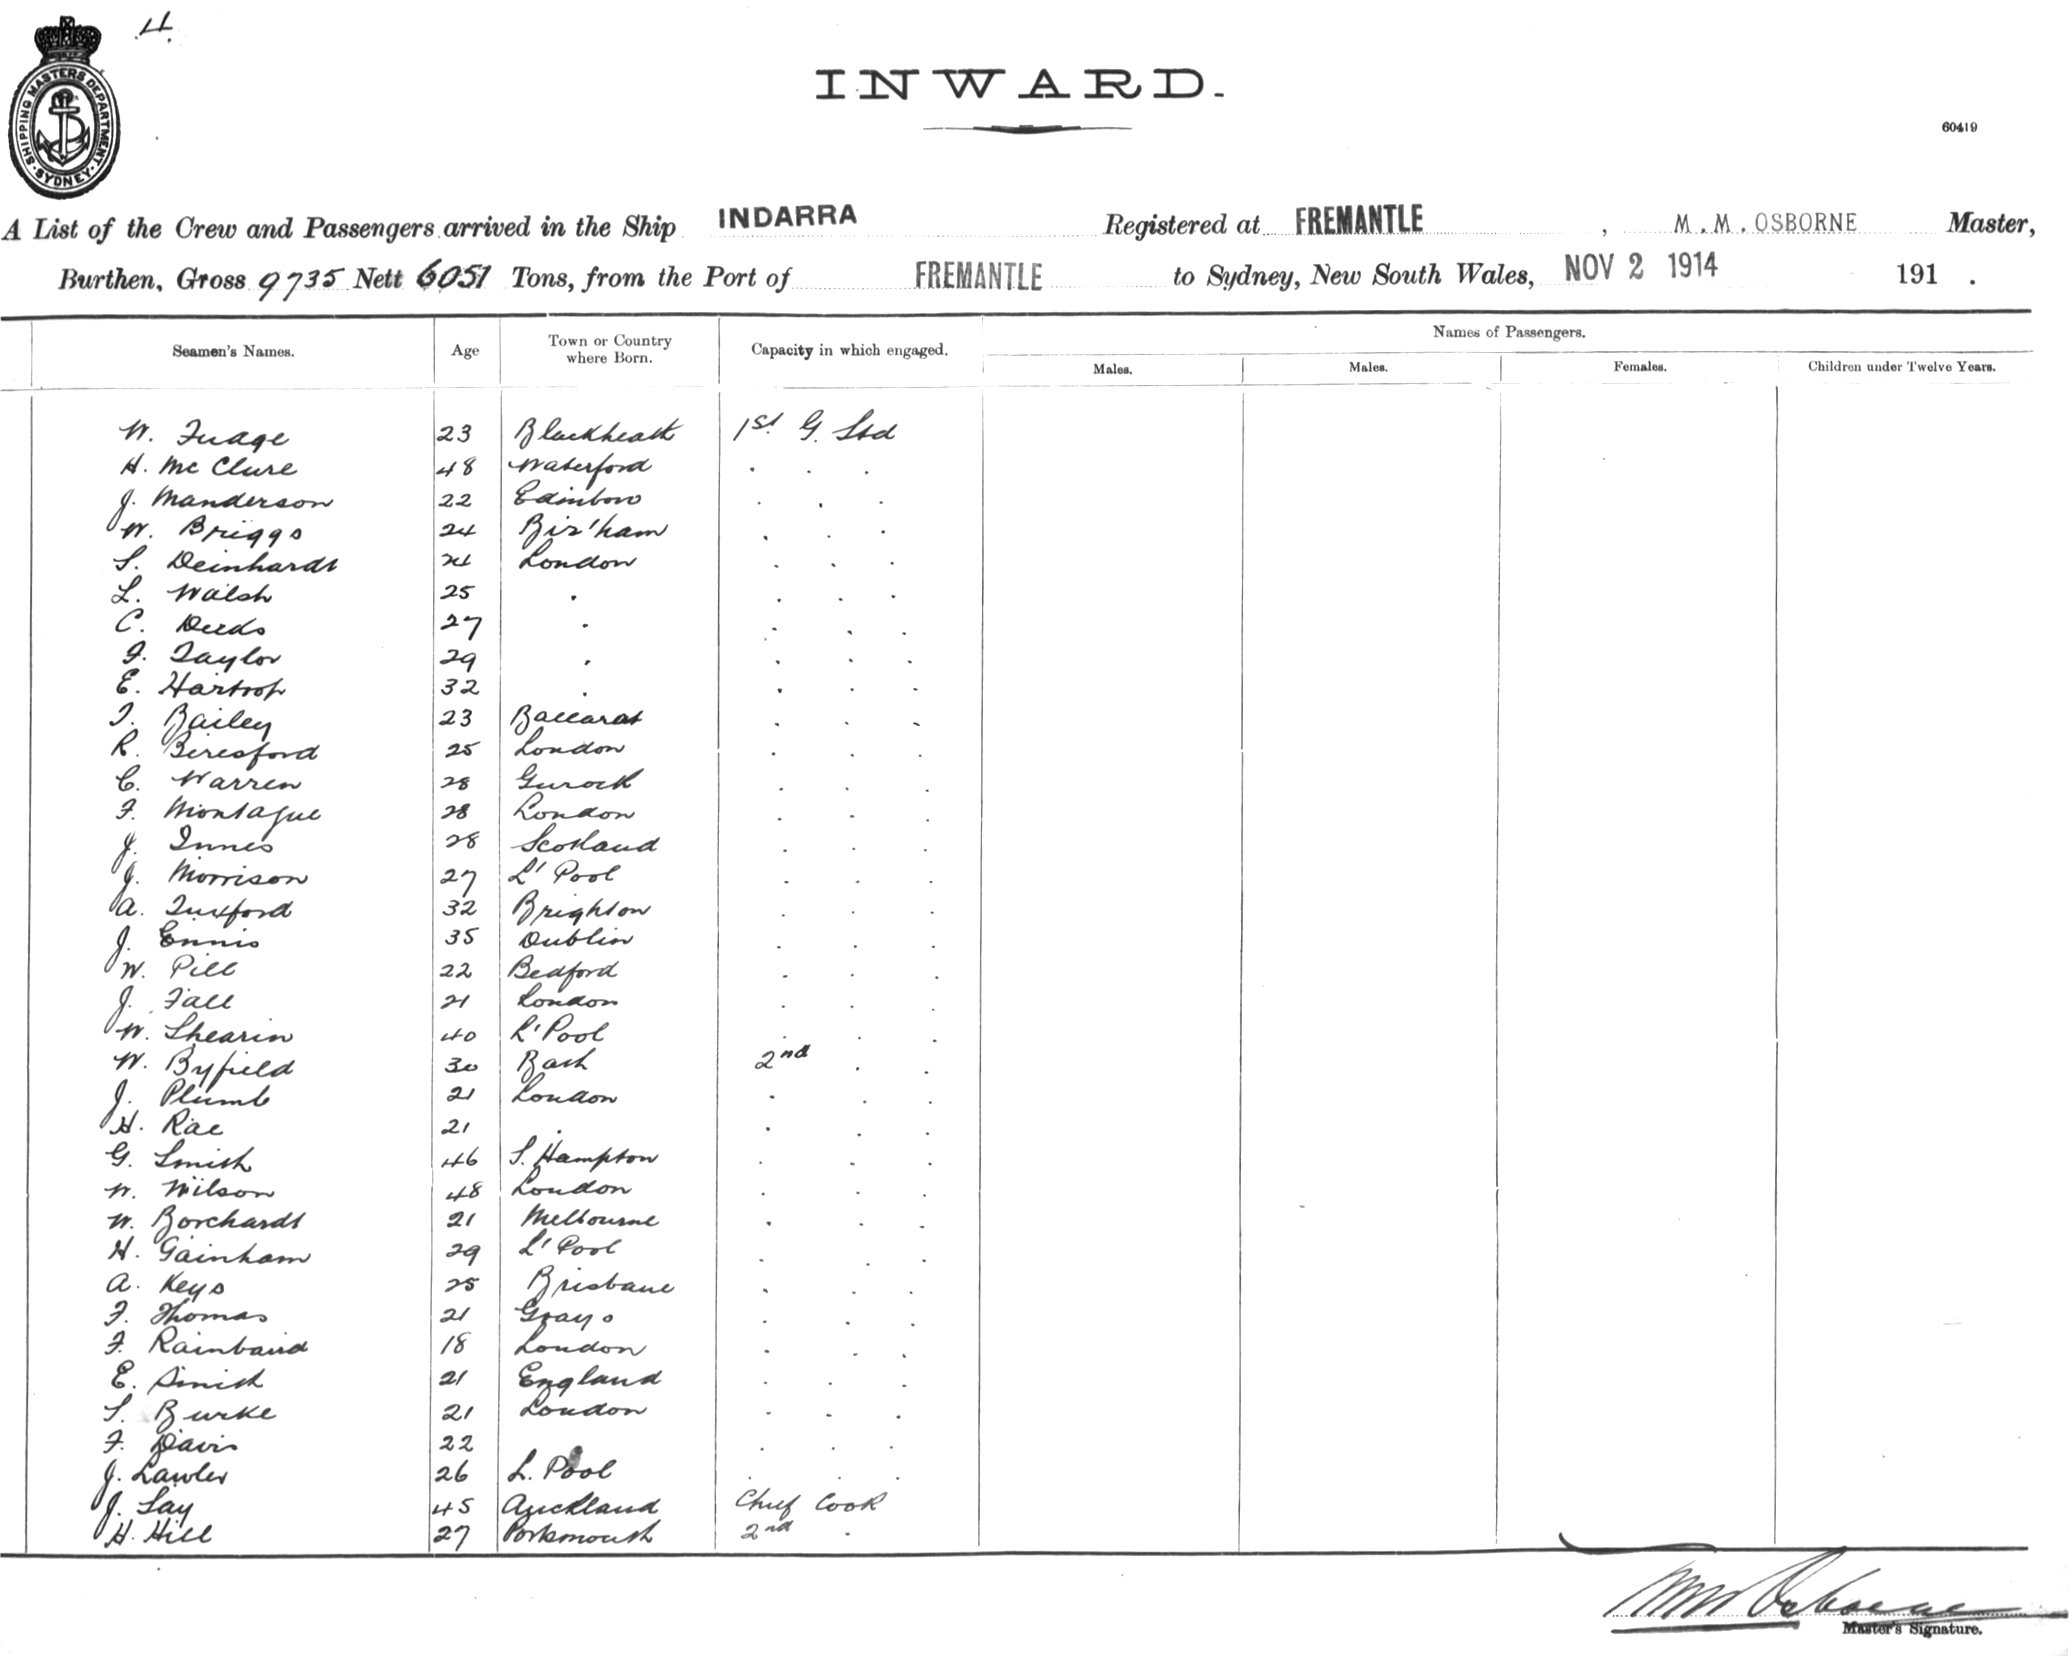 4.
SHIPPING MASTERS DEPARTMENT. SYDNEY
INWARD.
60419
A List of the Crew and Passengers arrived in the Ship INDARRA Registered at FREMANTLE, M.M. OSBORNE Master,
Burthen, Gross 9735 Nett 6051 Tons, from the Port of FREMANTLE to Sydney, New South Wales, NOV 2 1914 191 .
Names of Passengers.
Seamen's Names. Age Town or Country where Born. Capacity in which engaged. Males. Males. Females. Children under Twelve Years.
W. 23 Blackheath 1st G. Std
H. Mc Clure 48 Waterford . . .
J. Manderson 22 Edinboro . . .
W. Briggs 24 Bir'ham . . .
S. Deinhardt 21 London . . .
L. Walsh 25 . . . .
C. Deeds 27 . . . .
F. Taylor 29 . . . .
E. Hartoop 32 . . . .
T. Bailey 23 Ballarat . . .
R. Beresford 25 London . . .
C. Warren 28 Gurock . . .
F. Montague 28 London . . .
J. Innes 28 Scotland . . .
J. Morrison 27 L'Pool . . .
A. Tuxford 32 Brighton . . .
J. Ennis 35 Dublin . . .
W. Pill 22 Bedford . . .
J. Fall 21 London . . .
W. Shearin 40 L'Pool . . .
W. Byfield 30 Bath 2nd . .
J. Plumb 21 London . . .
H. Rae 21 . . . .
G. Smith 46 S. Hampton . . .
W. Wilson 48 London . . .
W. Borchardt 21 Melbourne . . .
H. Gainham 29 L'Pool . . .
A. Keys 25 Brisbane . . .
F. Thomas 21 Grays . . .
F. Rainbaird 18 London . . .
E. Smith 21 England . . .
S. Burke 21 London . . .
F. Davis 22 . . .
J. Lawler 26 L. Pool . . .
J. Lay 45 Auckland Chief Cook
H. Hill 27 Portsmouth 2nd .
MM Osborne
Master's Signature.